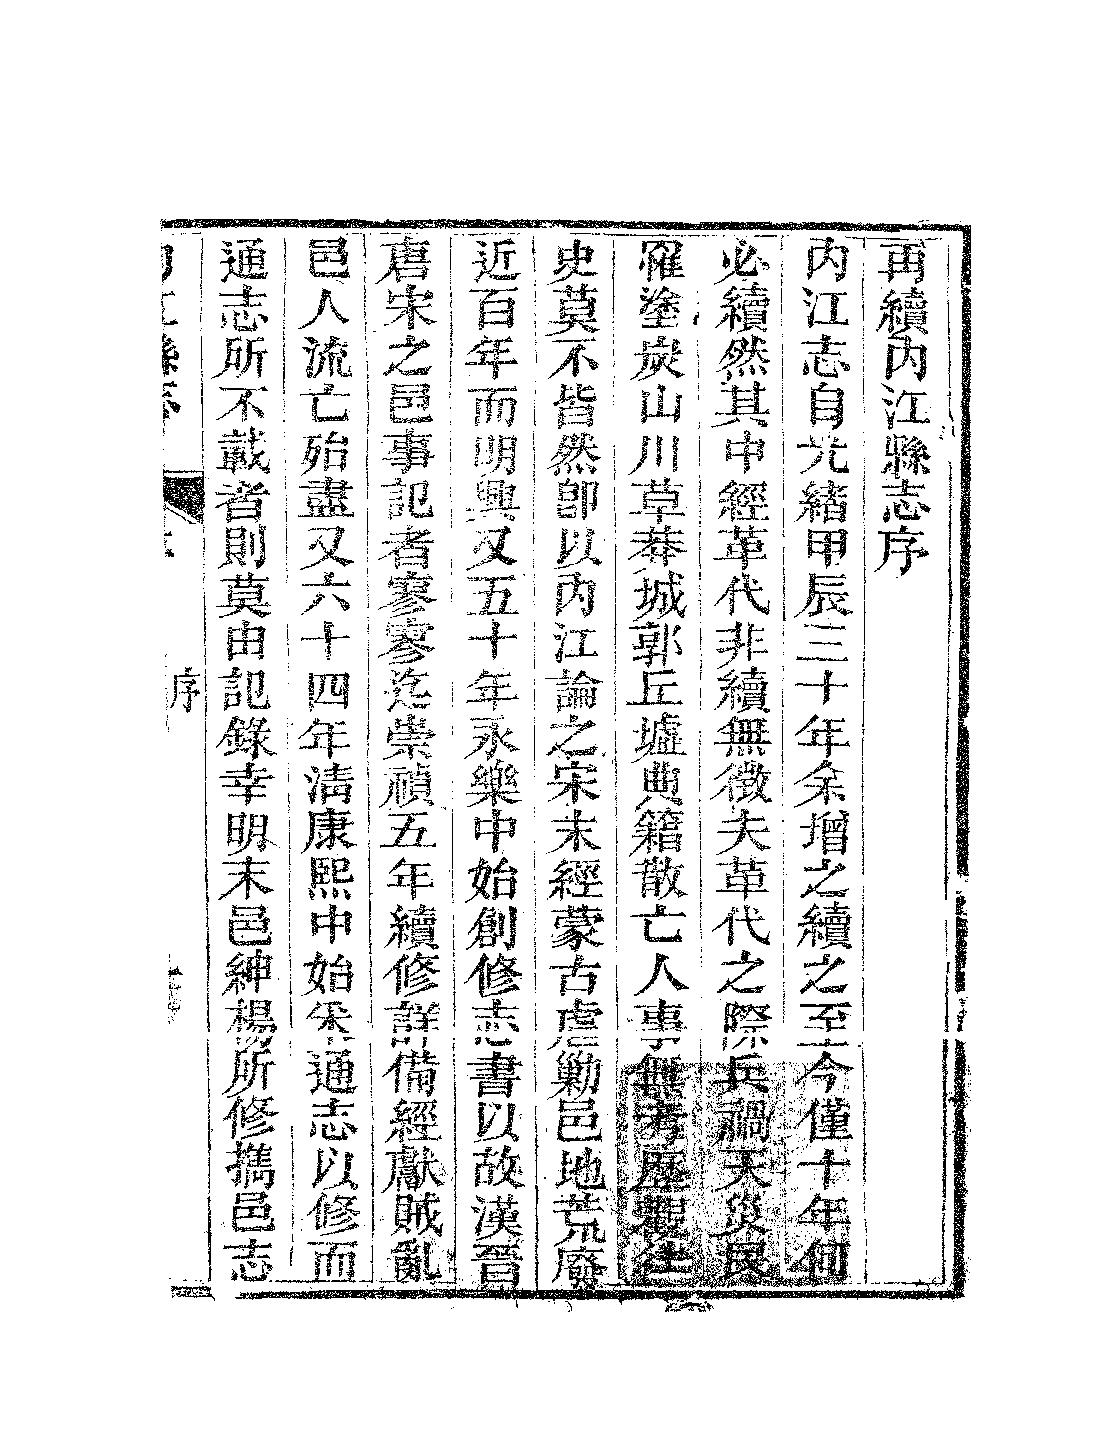 再續内江縣志序
内江志自光緒甲辰三十年余增之續之至今僅十年何
必續然其中經革代非續無徵夫革代之際兵禍天災民
罹塗炭山川草莽城郭丘墟典籍散亡人事無考歷觀往
史莫不皆然卽以内江論之宋末經蒙古虐勦邑地荒廢
近百年而明興又五十年永樂中始創修志書以故漢晉
唐宋之邑事記者寥寥迄崇禎五年續修詳備經獻賊亂
邑人流亡殆盡又六十四年清康熙中始采通志以修而
通志所不載者則莫由記錄幸明末邑紳楊所修攜邑志
内江縣志
序